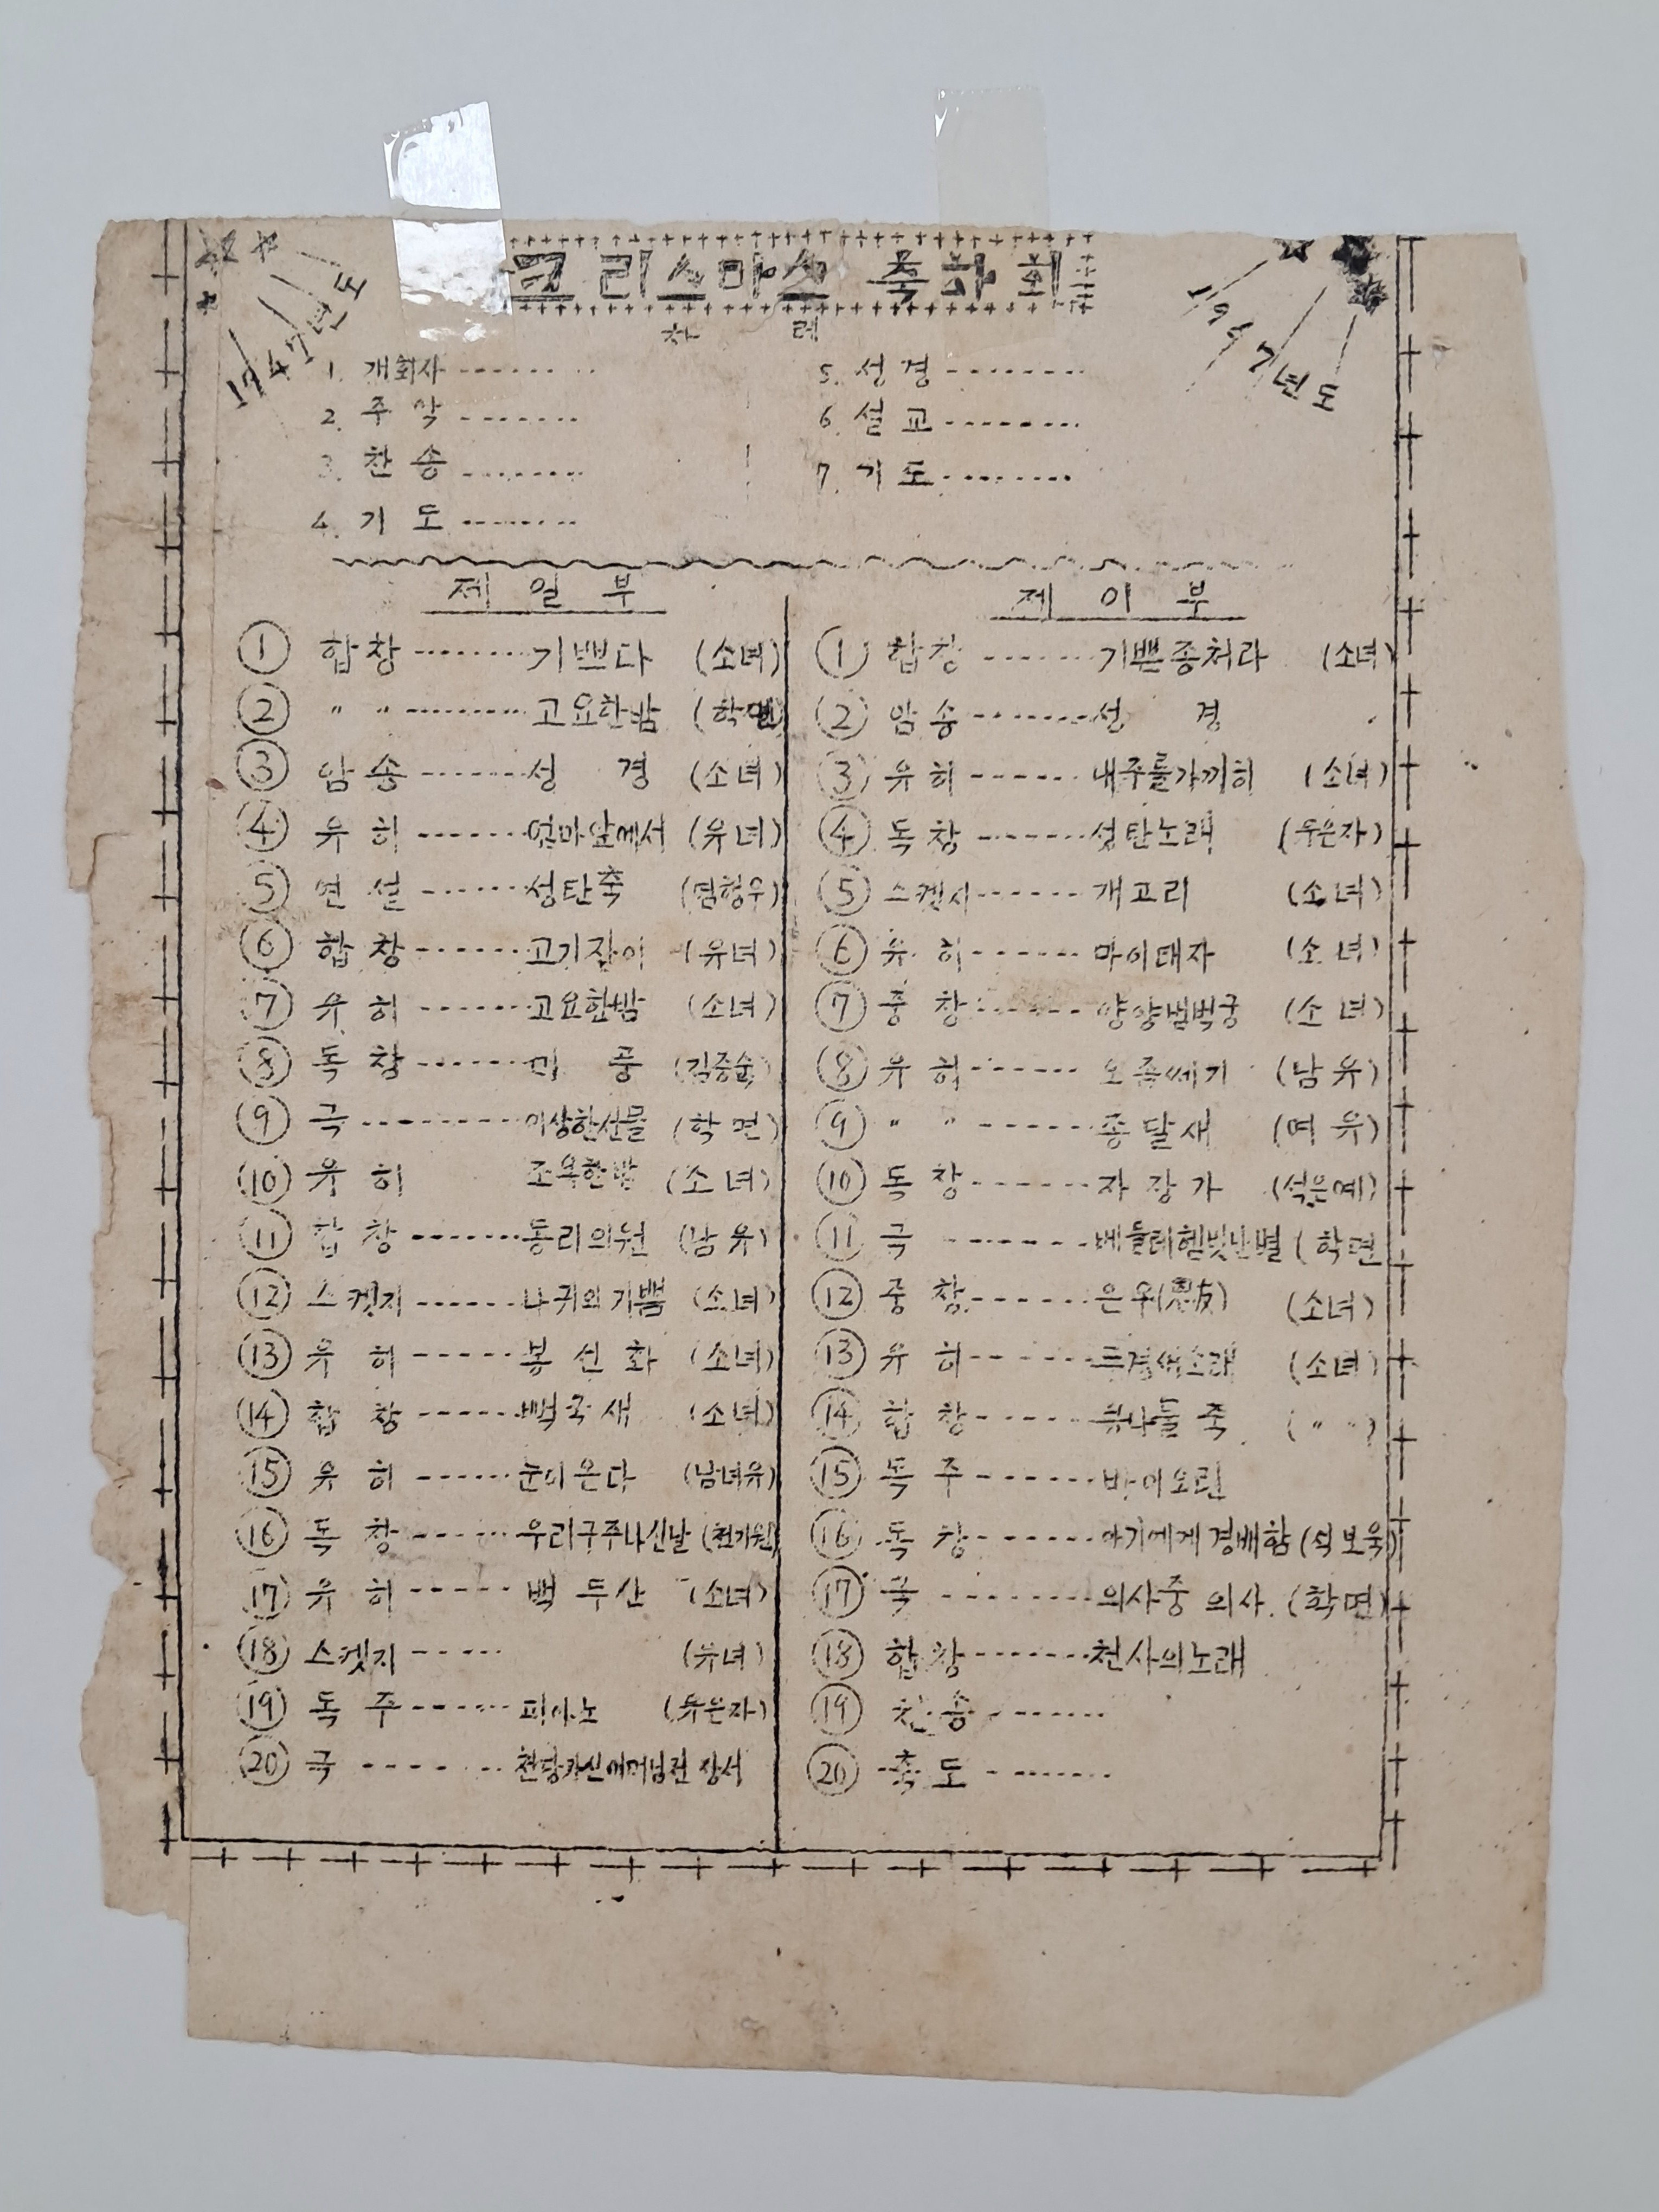 크리스마스 축하회
1947년도
1947년도
차 례
1. 개회사
2. 주 악
3. 찬 송
4. 기 도
5. 성 경
6. 설 교
7. 기 도
제 일 부
① 합 창 기쁘다 (소녀)
② 〃 〃 고요한밤 (학면)
③ 암 송 성 경 (소녀)
④ 유 히 엄마앞에서 (유녀)
⑤ 연 설 성탄축
⑥ 합 창 고기잡이 (유녀)
⑦ 유 히 고요한밤 (소녀)
⑧ 독 창 (김종순)
⑨ 극 이상한선물 (학면)
⑩ 유 히 (소녀)
⑪ 합 창 동리의원 (남유)
⑫ 스켓지 나귀의기쁨 (소녀)
⑬ 유 히 봉선화 (소녀)
⑭ 합 창 뻑국새 (소녀)
⑮ 유 히 눈이온다 (남녀유)
⑯ 독 창 우리구주나신날
⑰ 유 히 백두산 (소녀)
⑱ 스켓지 (유녀)
⑲ 독 주 피아노 (유은자)
⑳ 극 천당가신어머님전 상서
제 이 부
① 합 창 기쁜종처라 (소녀)
② 암 송 성 경
③ 유 히 내주를가끼히 (소녀)
④ 독 창 성탄노래 (유은자)
⑤ 스켓지 개고리 (소녀)
⑥ 유 히 마이태자 (소녀)
⑦ 중 창 (소녀)
⑧ 유 히 오줌쎄기 (남유)
⑨ 〃 〃 종달새 (여유)
⑩ 독 창 자장가 (석은예)
⑪ 극 베들레헴빛난별 (학면
⑫ 중 창 은우(恩友) (소녀)
⑬ 유 히 (소녀)
⑭ 합 창 (〃 〃)
⑮ 독 주 바이오린
⑯ 독 창 아기에게경배함 (석보욱)
⑰ 극 의사중 의사 (학면)
⑱ 합 창 천사의노래
⑲ 찬 송
⑳ 축 도